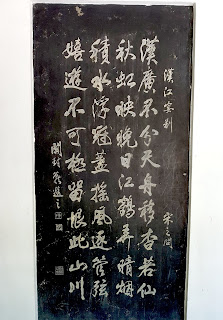 漢江宴別
宋之問
漢廣不分天舟移杳若仙
秋虹映晚日江鶴弄晴烟
積水浮冠蓋遙風逐管弦
嬉遊不可極留恨此山川